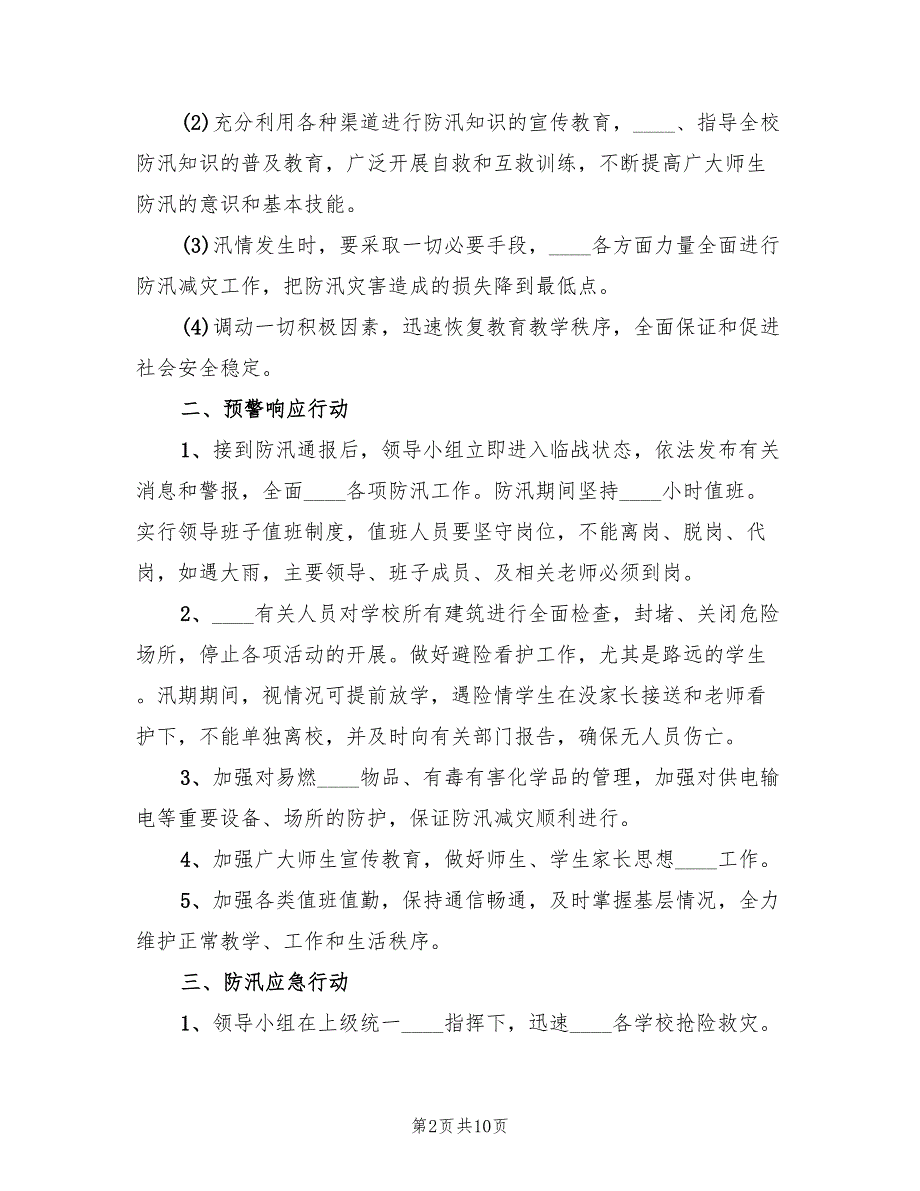 (2)充分利用各种渠道进行防汛知识的宣传教育，____、指导全校
防汛知识的普及教育，广泛开展自救和互救训练，不断提高广大师生
防汛的意识和基本技能。
(3)汛情发生时，要采取一切必要手段，____各方面力量全面进行
防汛减灾工作，把防汛灾害造成的损失降到最低点。
(4)调动一切积极因素，迅速恢复教育教学秩序，全面保证和促进
社会安全稳定。
二、预警响应行动
1、接到防汛通报后，领导小组立即进入临战状态，依法发布有关
消息和警报，全面____各项防汛工作。防汛期间坚持____小时值班。
实行领导班子值班制度，值班人员要坚守岗位，不能离岗、脱岗、代
岗，如遇大雨，主要领导、班子成员、及相关老师必须到岗。
2、____有关人员对学校所有建筑进行全面检查，封堵、关闭危险
场所，停止各项活动的开展。做好避险看护工作，尤其是路远的学生
。汛期期间，视情况可提前放学，遇险情学生在没家长接送和老师看
护下，不能单独离校，并及时向有关部门报告，确保无人员伤亡。
3、加强对易燃____物品、有毒有害化学品的管理，加强对供电输
电等重要设备、场所的防护，保证防汛减灾顺利进行。
4、加强广大师生宣传教育，做好师生、学生家长思想____工作。
5、加强各类值班值勤，保持通信畅通，及时掌握基层情况，全力
维护正常教学、工作和生活秩序。
三、防汛应急行动
1、领导小组在上级统一____指挥下，迅速____各学校抢险救灾。
第2页共10页